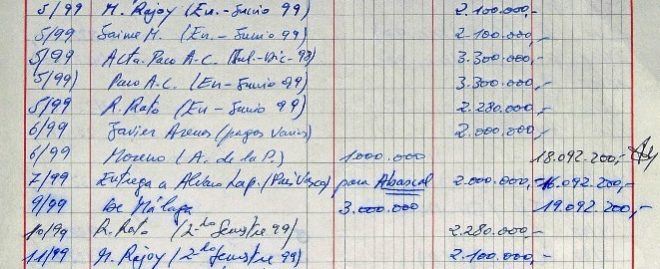 5/99 M. Rajoy (En.- Junio 99) 2.100.000,-
5/99 Jaime M. (En. - Junio 99) 2.100.000,-
5/99 Acta. Paco A.C. (Jul.-Dic-98) 3.300.000,-
(5/99) Paco A.C. (En-Junio 99) 3.300.000,-
5/99 R. Rato (En - Junio 99) 2.280.000,-
6/99 Javier Arenas (pagos varios) 2.000.000,-
6/99 Moreno (A. de la P.) 1.000.000 18.092.200,-
7/99 Entrega a Alvaro Lap. (Pais Vasco) para Abascal 2.000.000,- 16.092.200,-
9/99 De Málaga 3.000.000 19.092.200,-
10/99 R. Rato (2º Semestre 99) 2.280.000,-
11/99 M. Rajoy (2º Semestre 99) 2.100.000,-